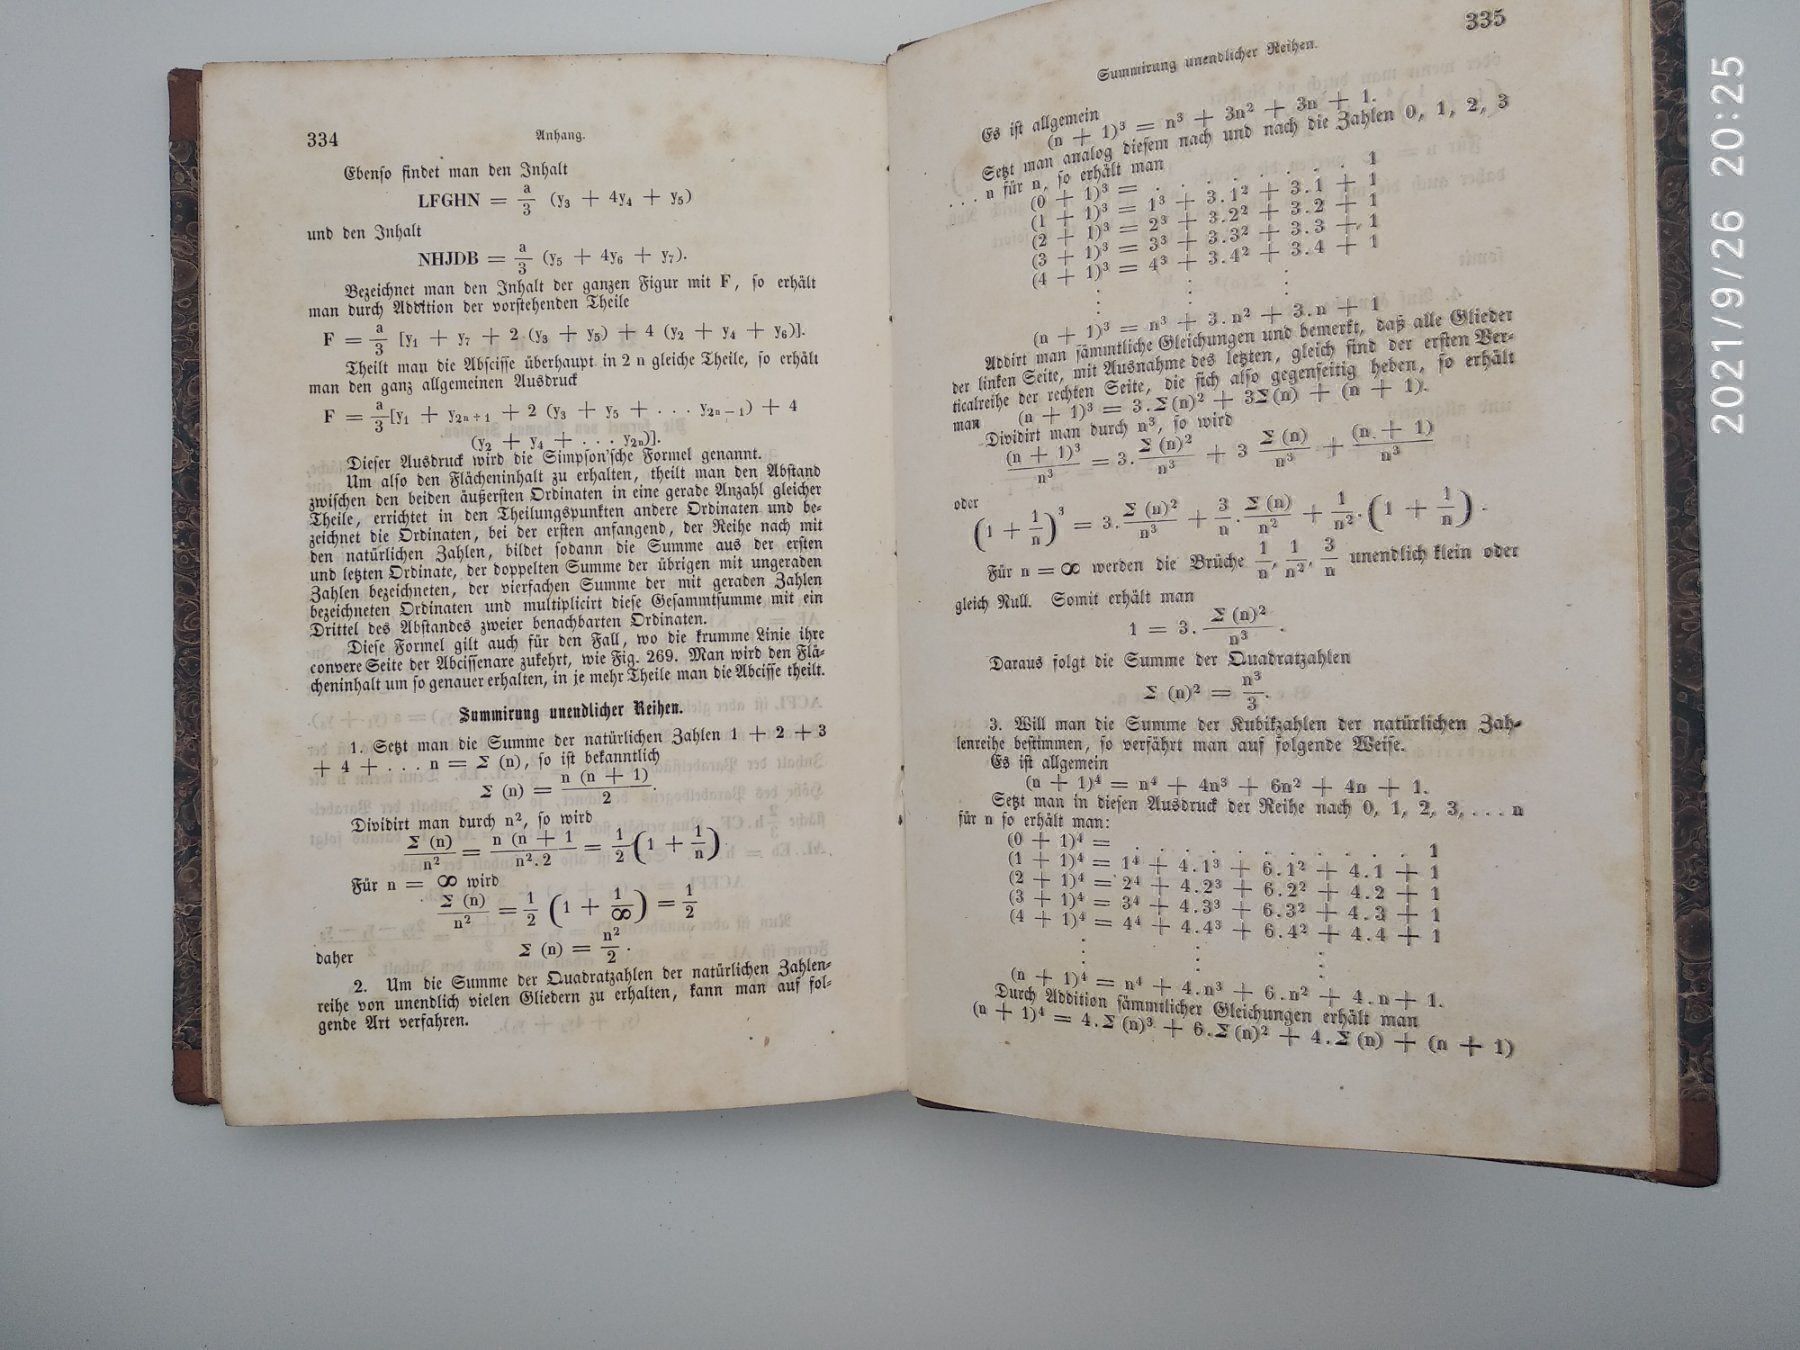 334
Anhang.
Ebenso findet man den Inhalt
LFGHN = a/3 (y₃ + 4y₄ + y₅)
und den Inhalt
NHJDB = a/3 (y₅ + 4y₆ + y₇).
Bezeichnet man den Inhalt der ganzen Figur mit F, so erhält
man durch Addition der vorstehenden Theile
F = a/3 [y₁ + y₇ + 2 (y₃ + y₅) + 4 (y₂ + y₄ + y₆)].
Theilt man die Abscisse überhaupt in 2 n gleiche Theile, so erhält
man den ganz allgemeinen Ausdruck
F = a/3 [y₁ + y₂ₙ₊₁ + 2 (y₃ + y₅ + . . . y₂ₙ₋₁) + 4
(y₂ + y₄ + . . . y₂ₙ)].
Dieser Ausdruck wird die Simpson'sche Formel genannt.
Um also den Flächeninhalt zu erhalten, theilt man den Abstand
zwischen den beiden äußersten Ordinaten in eine gerade Anzahl gleicher
Theile, errichtet in den Theilungspunkten andere Ordinaten und be-
zeichnet die Ordinaten, bei der ersten anfangend, der Reihe nach mit
den natürlichen Zahlen, bildet sodann die Summe aus der ersten
und letzten Ordinate, der doppelten Summe der übrigen mit ungeraden
Zahlen bezeichneten, der vierfachen Summe der mit geraden Zahlen
bezeichneten Ordinaten und multiplicirt diese Gesammtsumme mit ein
Drittel des Abstandes zweier benachbarten Ordinaten.
Diese Formel gilt auch für den Fall, wo die krumme Linie ihre
convexe Seite der Abcissenaxe zukehrt, wie Fig. 269. Man wird den Flä-
cheninhalt um so genauer erhalten, in je mehr Theile man die Abcisse theilt.
Summirung unendlicher Reihen.
1. Setzt man die Summe der natürlichen Zahlen 1 + 2 + 3
+ 4 + . . . n = Σ (n), so ist bekanntlich
Σ (n) = n (n + 1)/2.
Dividirt man durch n², so wird
Σ (n)/n² = n (n + 1/n².2 = 1/2 (1 + 1/n).
Für n = ∞ wird
Σ (n)/n² = 1/2 (1 + 1/∞) = 1/2
daher Σ (n) = n²/2.
2. Um die Summe der Quadratzahlen der natürlichen Zahlen-
reihe von unendlich vielen Gliedern zu erhalten, kann man auf fol-
gende Art verfahren.
Summirung unendlicher Reihen.
335
Es ist allgemein
(n + 1)³ = n³ + 3n² + 3n + 1.
Setzt man analog diesem nach und nach die Zahlen 0, 1, 2, 3
. . . n für n, so erhält man
(0 + 1)³ = . . . . . . . . 1
(1 + 1)³ = 1³ + 3.1² + 3.1 + 1
(2 + 1)³ = 2³ + 3.2² + 3.2 + 1
(3 + 1)³ = 3³ + 3.3² + 3.3 + 1
(4 + 1)³ = 4³ + 3.4² + 3.4 + 1
(n + 1)³ = n³ + 3.n² + 3.n + 1
Addirt man sämmtliche Gleichungen und bemerkt, daß alle Glieder
der linken Seite, mit Ausnahme des letzten, gleich sind der ersten Ver-
ticalreihe der rechten Seite, die sich also gegenseitig heben, so erhält
man (n + 1)³ = 3.Σ(n)² + 3Σ(n) + (n + 1).
Dividirt man durch n³, so wird
(n + 1)³/n³ = 3. Σ (n)²/n³ + 3 Σ (n)/n³ + (n + 1)/n³
oder
(1 + 1/n)³ = 3. Σ (n)²/n³ + 3/n . Σ (n)/n² + 1/n² . (1 + 1/n).
Für n = ∞ werden die Brüche 1/n, 1/n², 3/n unendlich klein oder
gleich Null. Somit erhält man
1 = 3. Σ (n)²/n³.
Daraus folgt die Summe der Quadratzahlen
Σ (n)² = n³/3.
3. Will man die Summe der Kubikzahlen der natürlichen Zah-
lenreihe bestimmen, so verfährt man auf folgende Weise.
Es ist allgemein
(n + 1)⁴ = n⁴ + 4n³ + 6n² + 4n + 1.
Setzt man in diesen Ausdruck der Reihe nach 0, 1, 2, 3, . . . n
für n so erhält man:
(0 + 1)⁴ = . . . . . . . . . . . 1
(1 + 1)⁴ = 1⁴ + 4.1³ + 6.1² + 4.1 + 1
(2 + 1)⁴ = 2⁴ + 4.2³ + 6.2² + 4.2 + 1
(3 + 1)⁴ = 3⁴ + 4.3³ + 6.3² + 4.3 + 1
(4 + 1)⁴ = 4⁴ + 4.4³ + 6.4² + 4.4 + 1
(n + 1)⁴ = n⁴ + 4.n³ + 6.n² + 4.n + 1.
Durch Addition sämmtlicher Gleichungen erhält man
(n + 1)⁴ = 4.Σ(n)³ + 6.Σ(n)² + 4.Σ(n) + (n + 1)
2021/9/26 20:25